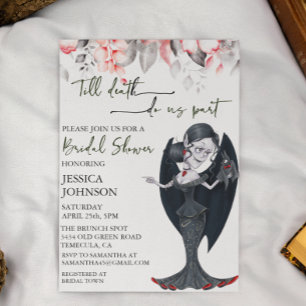 Till death
do us part
PLEASE JOIN US FOR A
Bridal Shower
HONORING
JESSICA
JOHNSON
SATURDAY
APRIL 25th, 5PM
THE BRUNCH SPOT
5434 OLD GREEN ROAD
TEMECULA, CA
RSVP TO SAMANTHA AT
SAMANTHA45@GMAIL.COM
REGISTERED AT
BRIDAL TOWN